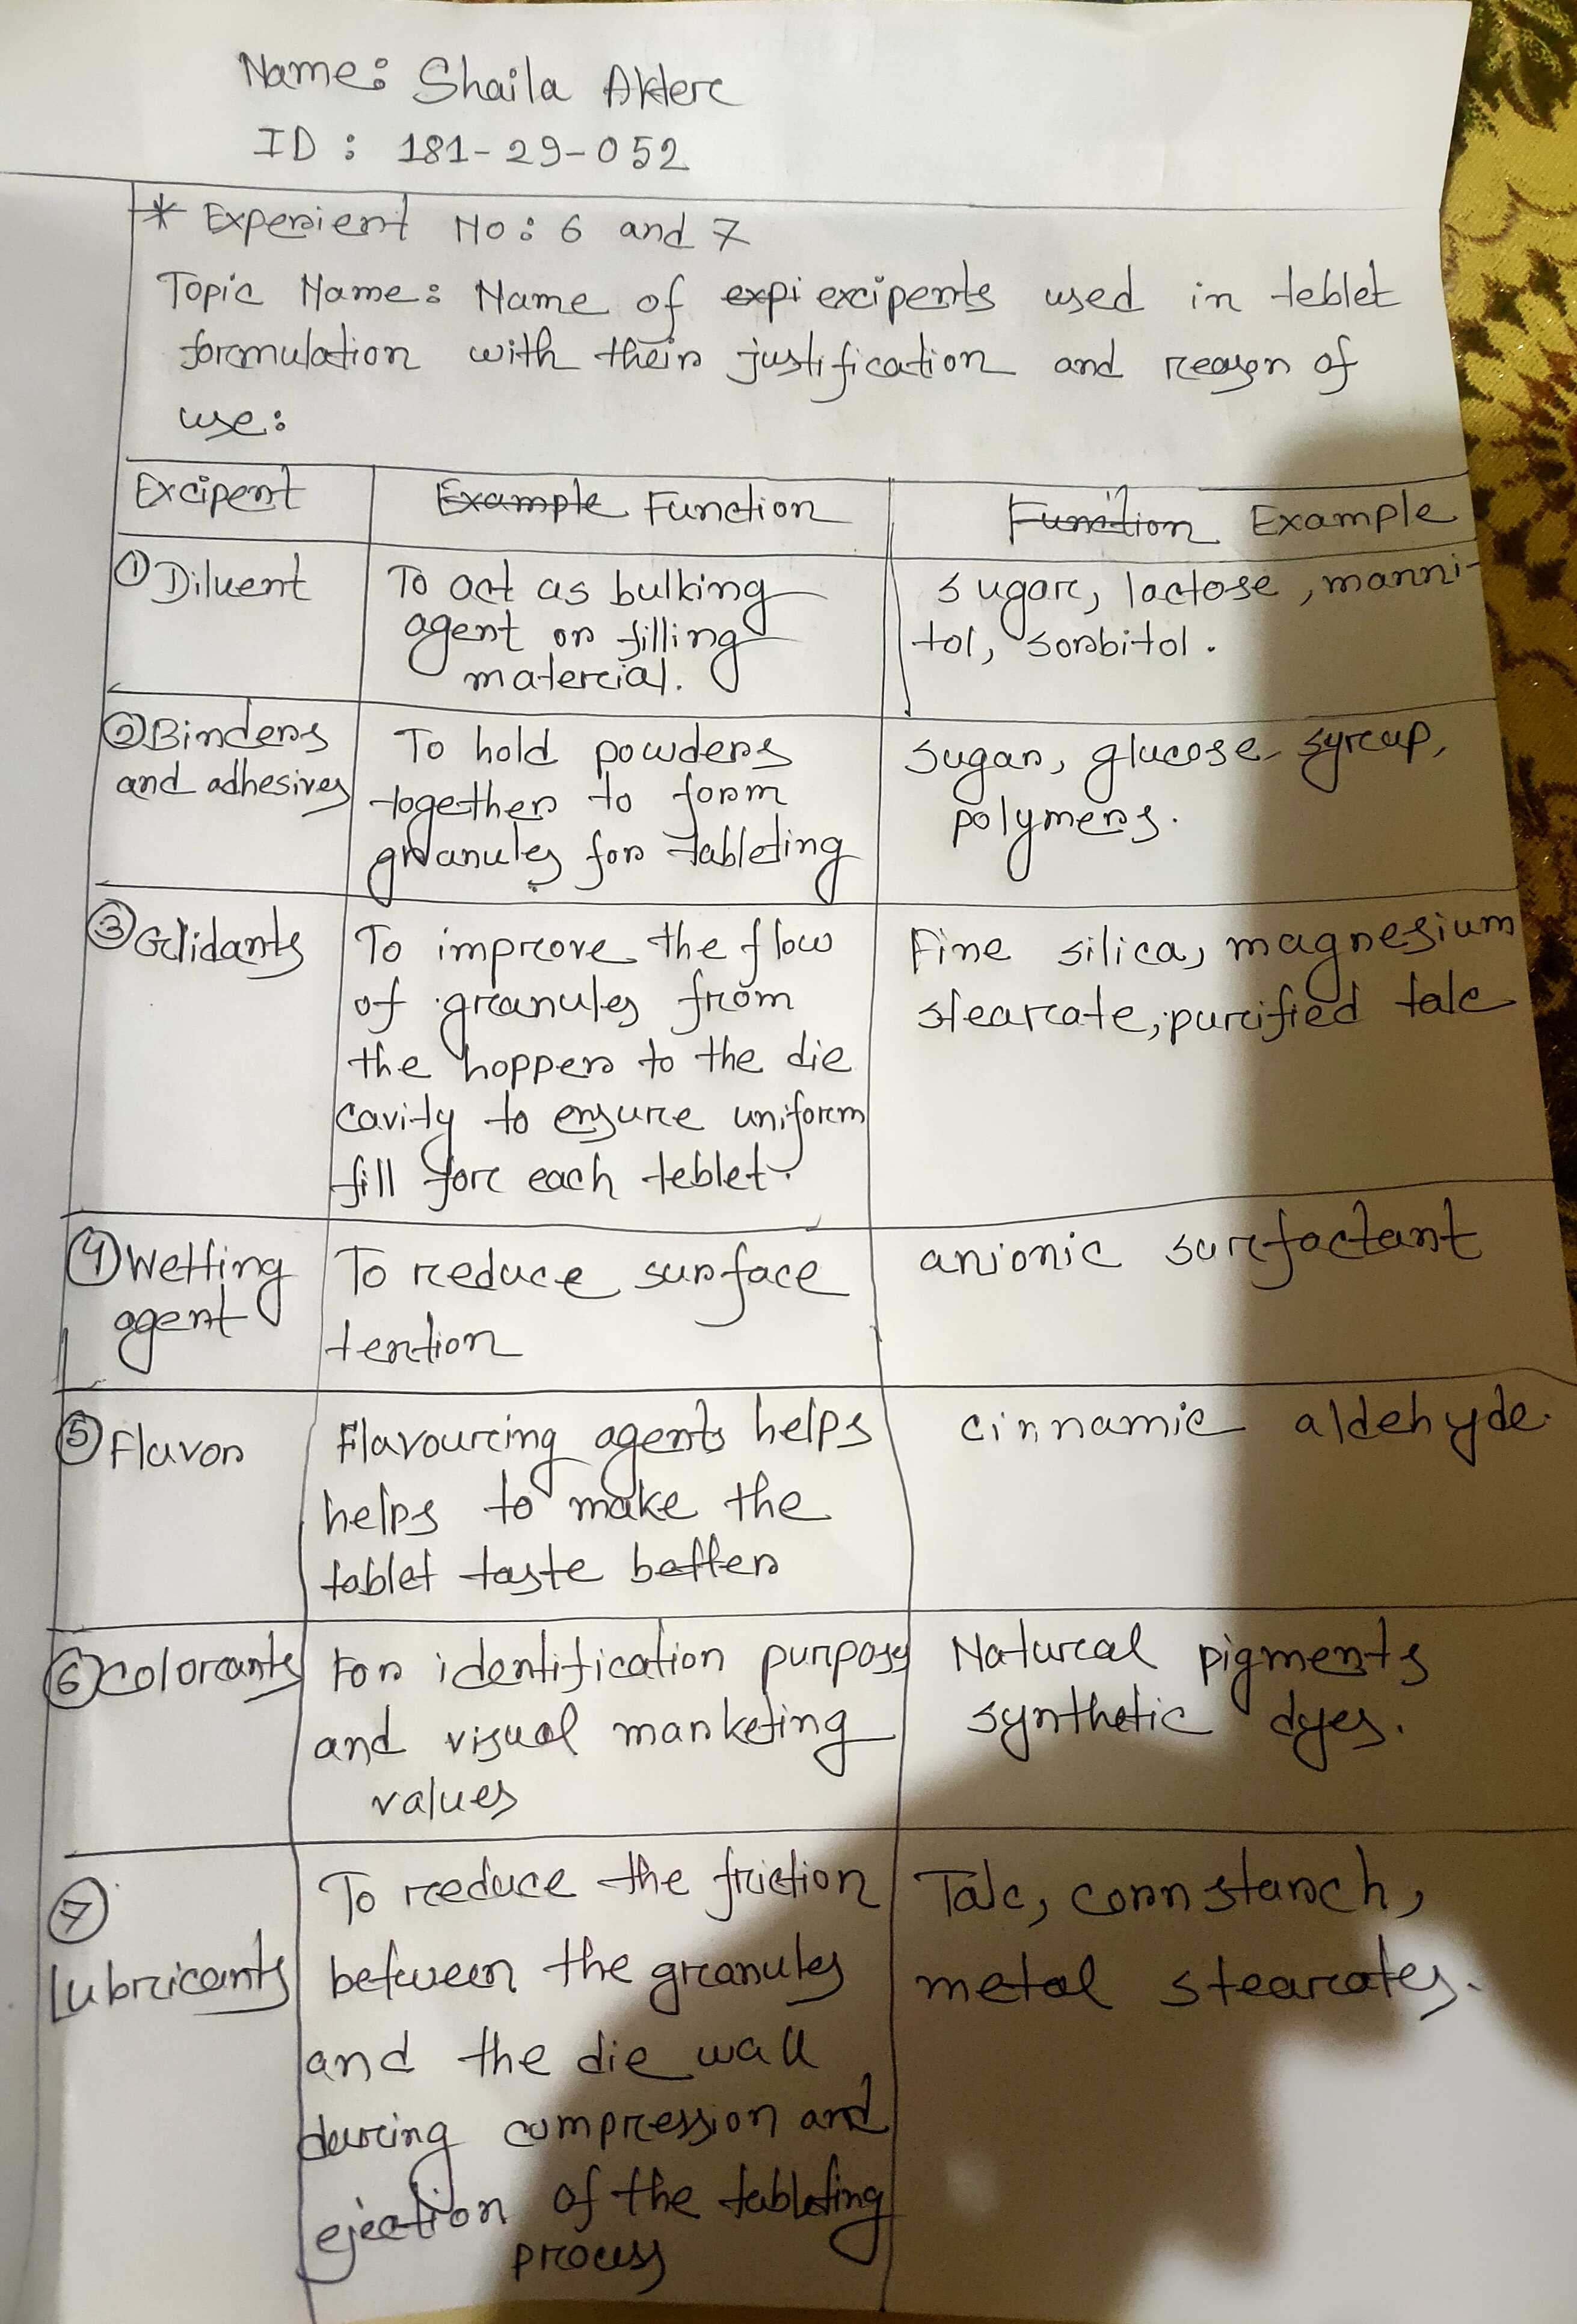 Name: Shaila Akter
ID : 181-29-052
* Experient No: 6 and 7
Topic Name: Name of expi excipents used in teblet
formulation with their justification and reason of
use:
Excipent
Example Function
Function Example
① Diluent
To act as bulking
agent or filling
material.
sugar, lactose, manni-
tol, sorbitol.
② Binders
and adhesives
To hold powders
together to form
granules for tableting
sugar, glucose syrup,
polymers.
③ Glidants
To improve the flow
of granules from
the hopper to the die
cavity to ensure uniform
fill for each teblet.
Fine silica, magnesium
stearate, purified talc
④ Wetting
agent
To reduce surface
tention
anionic surfactant
⑤ Flavor
Flavouring agents helps
helps to make the
tablet taste better
cinnamic aldehyde.
⑥ colorants
For identification purposy
and visual marketing
values
Natural pigments
synthetic dyes.
⑦
Lubricants
To reduce the friction
between the granules
and the die wall
during compression and
ejection of the tableting
process
Talc, corn starch,
metal stearates.